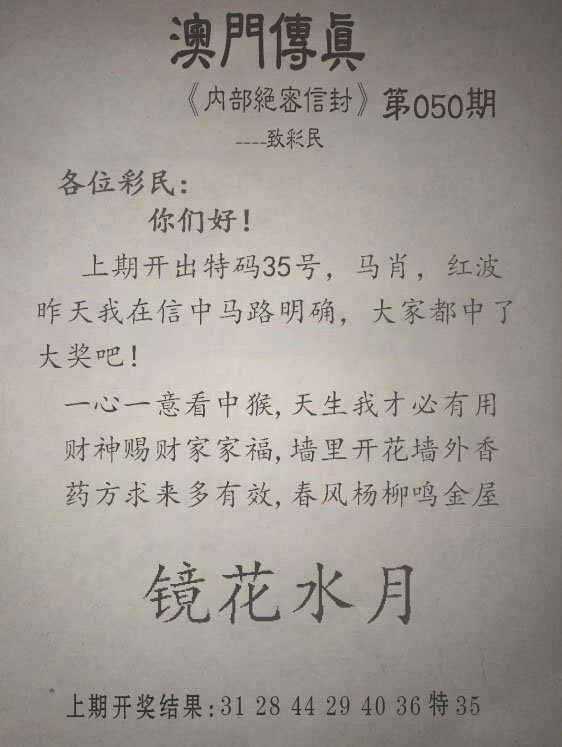 澳門傳眞
《内部絕密信封》第050期
----致彩民
各位彩民：
你们好！
上期开出特码35号，马肖，红波
昨天我在信中马路明确，大家都中了
大奖吧！
一心一意看中猴,天生我才必有用
财神赐财家家福,墙里开花墙外香
药方求来多有效,春风杨柳鸣金屋
镜花水月
上期开奖结果:31 28 44 29 40 36 特 35